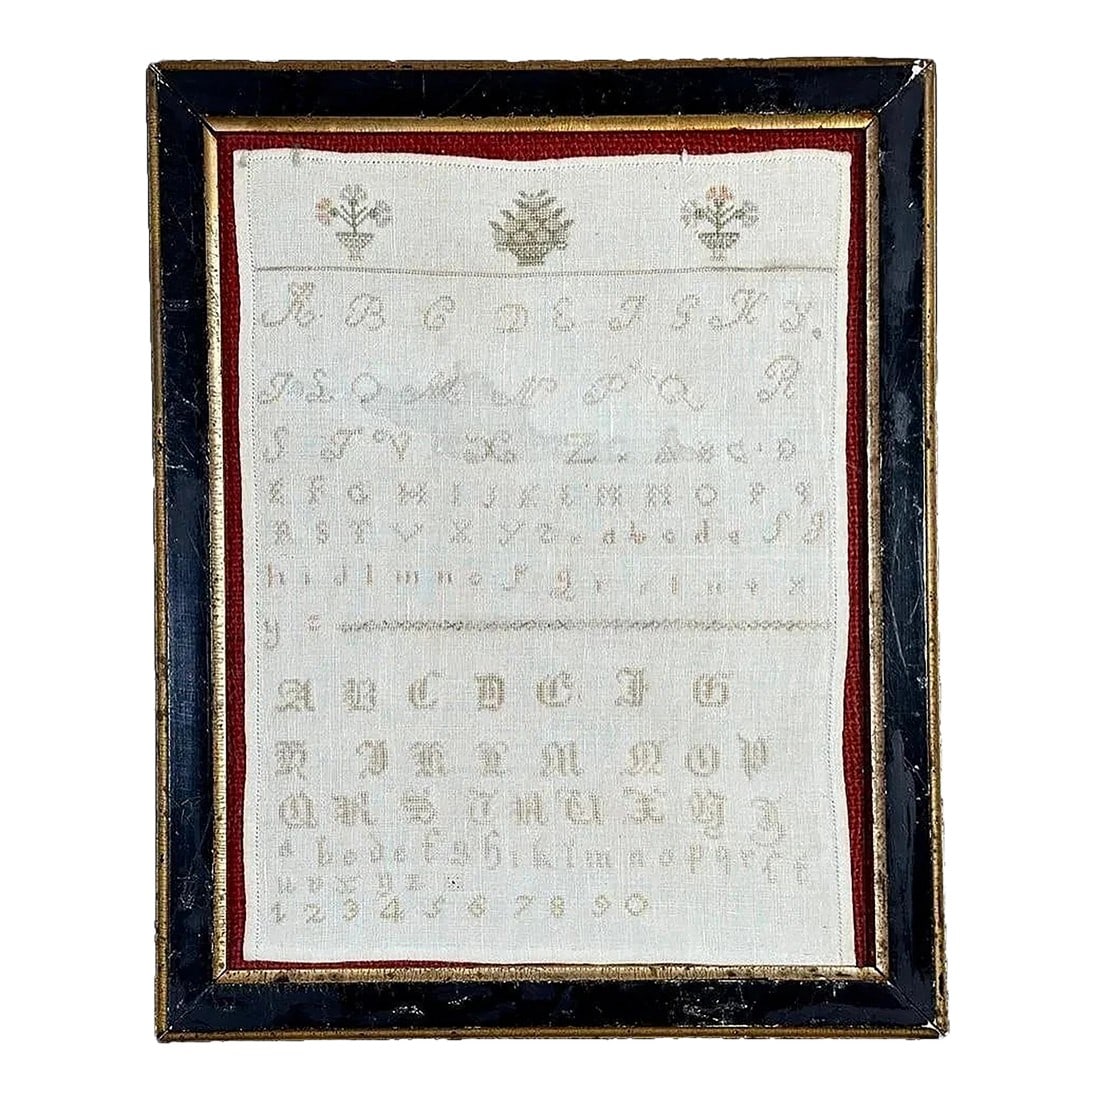 A B C D E F G H J.
I L O M N P Q R
S T V X Z . A B C D
E F G H I J K L M N O P Q
R S T V X Y Z . a b c d e f g
h i j l m n o p q r s t u v x
y z
A B C D E F G
H I K L M N O P
Q R S T U V X Y Z
a b c d e f g h i k l m n o p q r s t
u v x y z
1 2 3 4 5 6 7 8 9 0